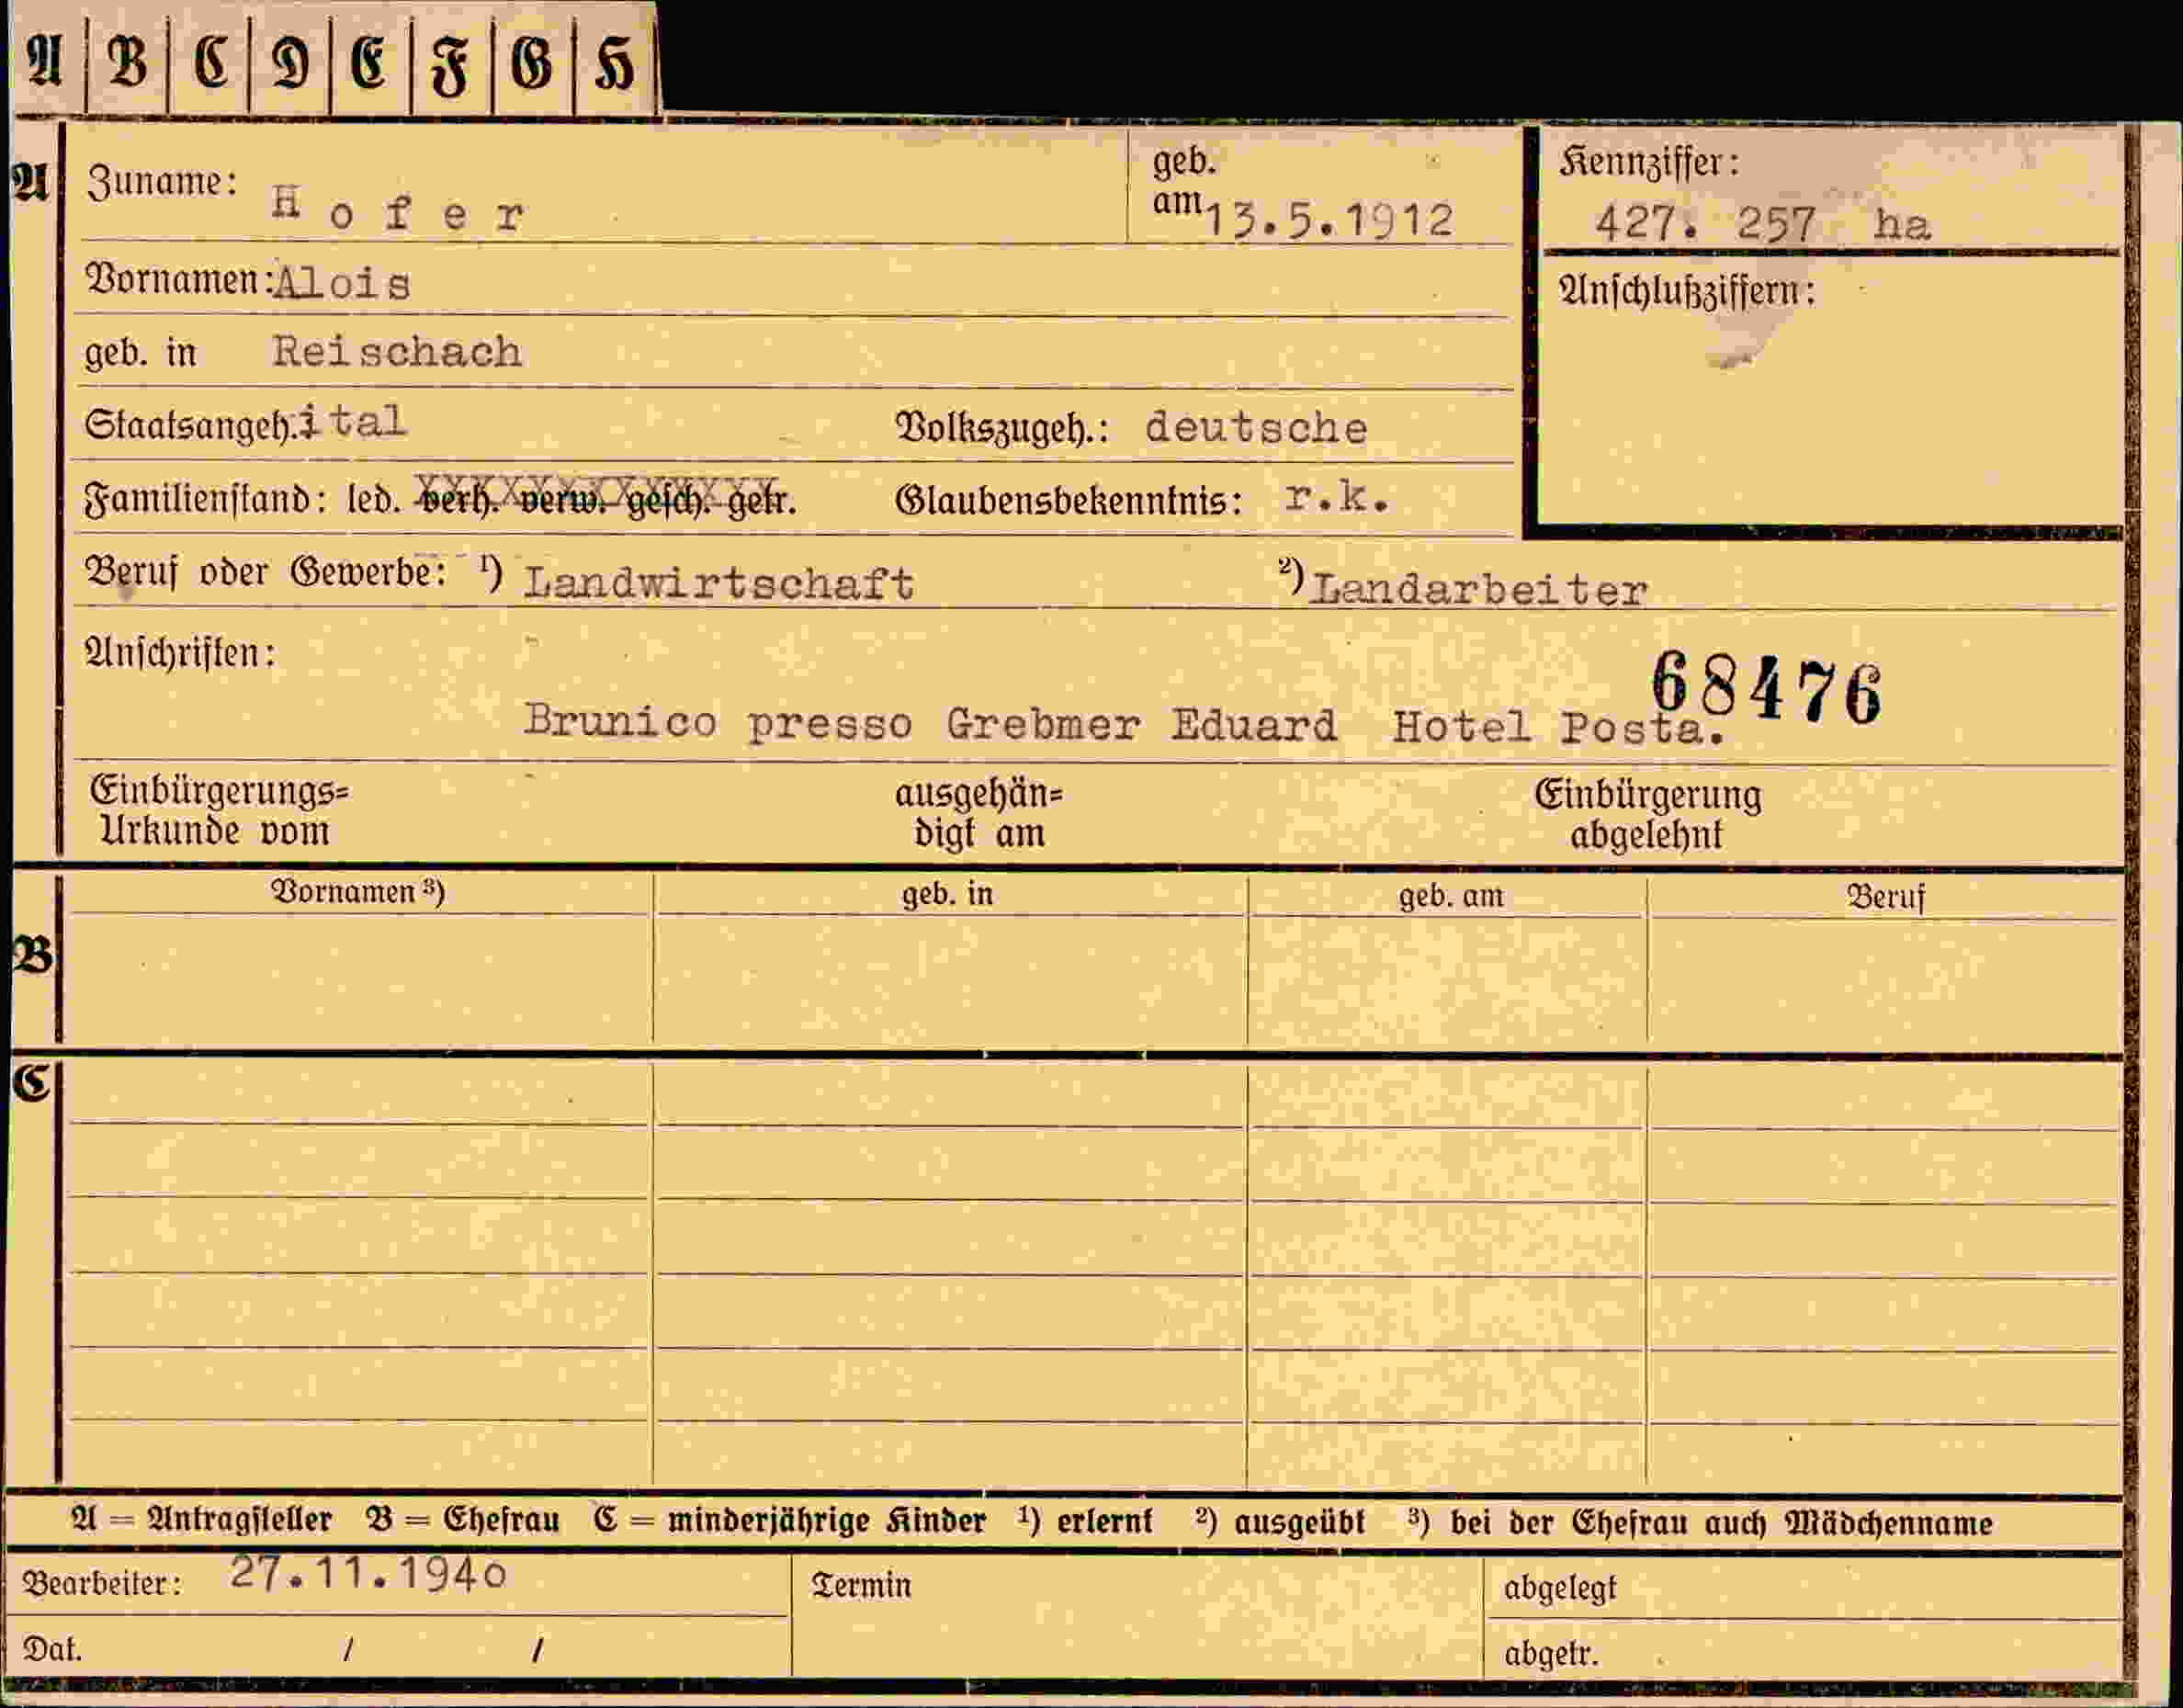 A B C D E F G H
A Zuname: Hofer geb. am 13.5.1912 Kennziffer: 427. 257 ha
Vornamen: Alois Anschlußziffern:
geb. in Reischach
Staatsangeh. ital Volkszugeh.: deutsche
Familienstand: led. verh. verw. gesch. getr. Glaubensbekenntnis: r.k.
Beruf oder Gewerbe: ¹) Landwirtschaft ²) Landarbeiter
Anschriften:
68476
Brunico presso Grebmer Eduard Hotel Posta.
Einbürgerungs= ausgehän= Einbürgerung
Urkunde vom digt am abgelehnt
Vornamen ³) geb. in geb. am Beruf
B
C
A = Antragsteller B = Ehefrau C = minderjährige Kinder ¹) erlernt ²) ausgeübt ³) bei der Ehefrau auch Mädchenname
Bearbeiter: 27.11.1940 Termin abgelegt
Dat. / / abgetr.